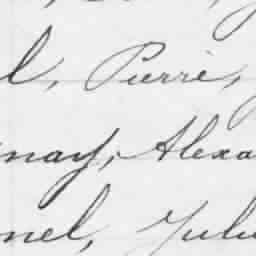 l, Pierre,
nay, Alexa
nel, Jule